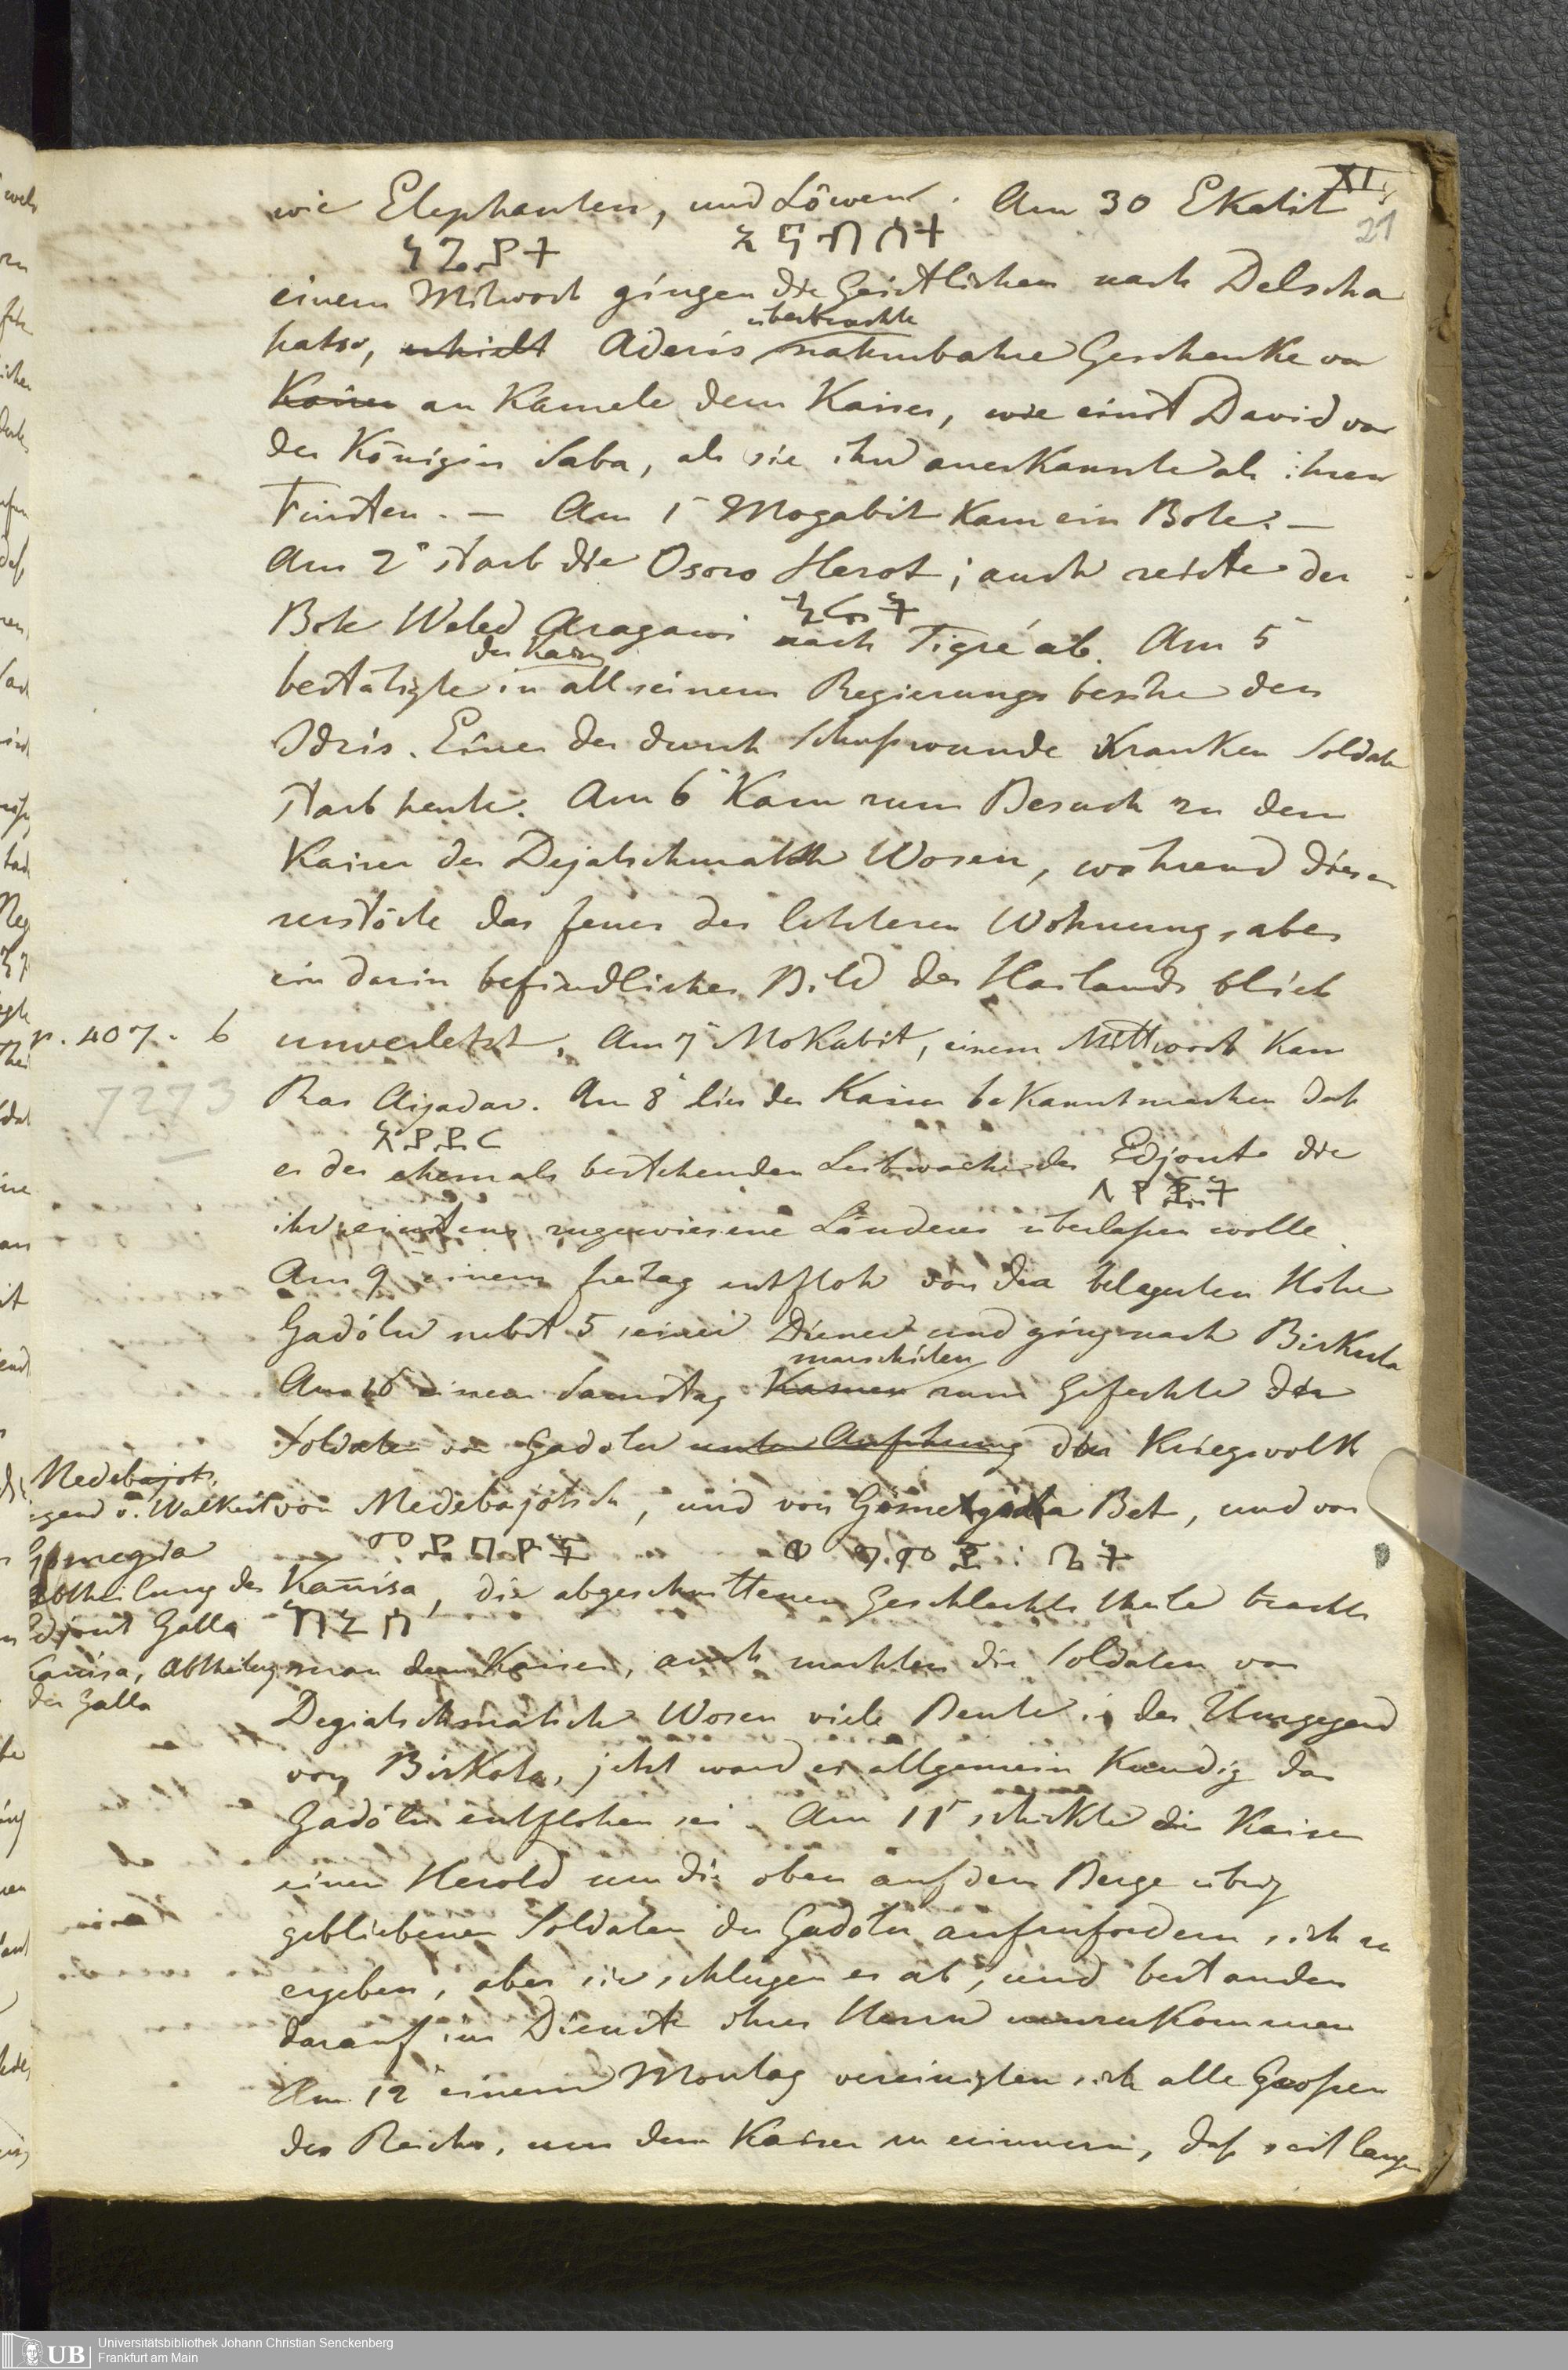 XI,
21
wie Elephanten, und Löwen. Am 30 Ekatit
einem Mitwoch gingen die Geistlichen nach Delscha
überbrachte
hatso, erhielt Aderis nahmbahre Geschenke von
Kaiser an Kamele dem Kaiser, wie einst David von
der Königin Saba, als sie ihn anerkannte als ihren
Fürsten. — Am 1ͭ Mogabit kam ein Bote. —
Am 2ͭ starb die Osoro Herot; auch reiste der
Bote Weled Aragawi nach Tigré ab. Am 5ͭ
der Kaiser
bestätigte in all seinem Regierungs besitze den
Idris. Einer der durch Schuſswunde Kranken Soldat
starb heute. Am 6ͭ Kam zum Besuch zu dem
Kaiser der Dejatschmatsch Wosen, während dieser
zerstörte das Feuer des letzteren Wohnung, aber
ein darin befindliches Bild des Heilands blieb
p. 407. b
unverletzt. Am 7ͭ Mokabit, einem Mittwoch Kam
7273
Ras Aijadar. Am 8ͭ lies der Kaiser bekanntmachen daß
er der ehemals bestehenden Leibwache der Edjoute die
ihr erstens zugewiesene Länderei überlaſsen wolle.
Am 9ͭ einem Freitag entfloh von der belagerten Höhe
Gadölu nebst 5 seiner Diener und ging nach Birkuta
marschirten
Am 10 einem Samstag Kamen zum Gefechte der
Soldaten von Gadolu unter Anführung das Kriegsvolk
Medebajots,
Gegend v. Walkeit
von Medebajotsch, und von Gometgia Bet, und von
Gomegia
Abtheilung der
Edjout Galla
Kanisa, die abgeschnittenen Geschlechts theile brachte
Kanisa, Abtheilung
der Galla
man dem Kaiser, auch machten die Soldaten von
Degiatschmatsch Wosen viele Beute in der Umgegend
von Birkota, jetzt ward es allgemein Kundig das
Gadölu entflohen sei. Am 11ͭ schickte der Kaiser
einen Herold um die oben auf dem Berge übrig
gebliebenen Soldaten des Gadolu aufzufordern, sich zu
ergeben, aber sie schlugen es ab, und bestanden
darauf im Dienste ihres Herrn umzukommen
Am 12ͭ einem Montag vereinigten sich alle Groſsen
des Reichs, um dem Kaiser zu erinnern, daſs seit langer
Universitätsbibliothek Johann Christian Senckenberg
Frankfurt am Main
UB